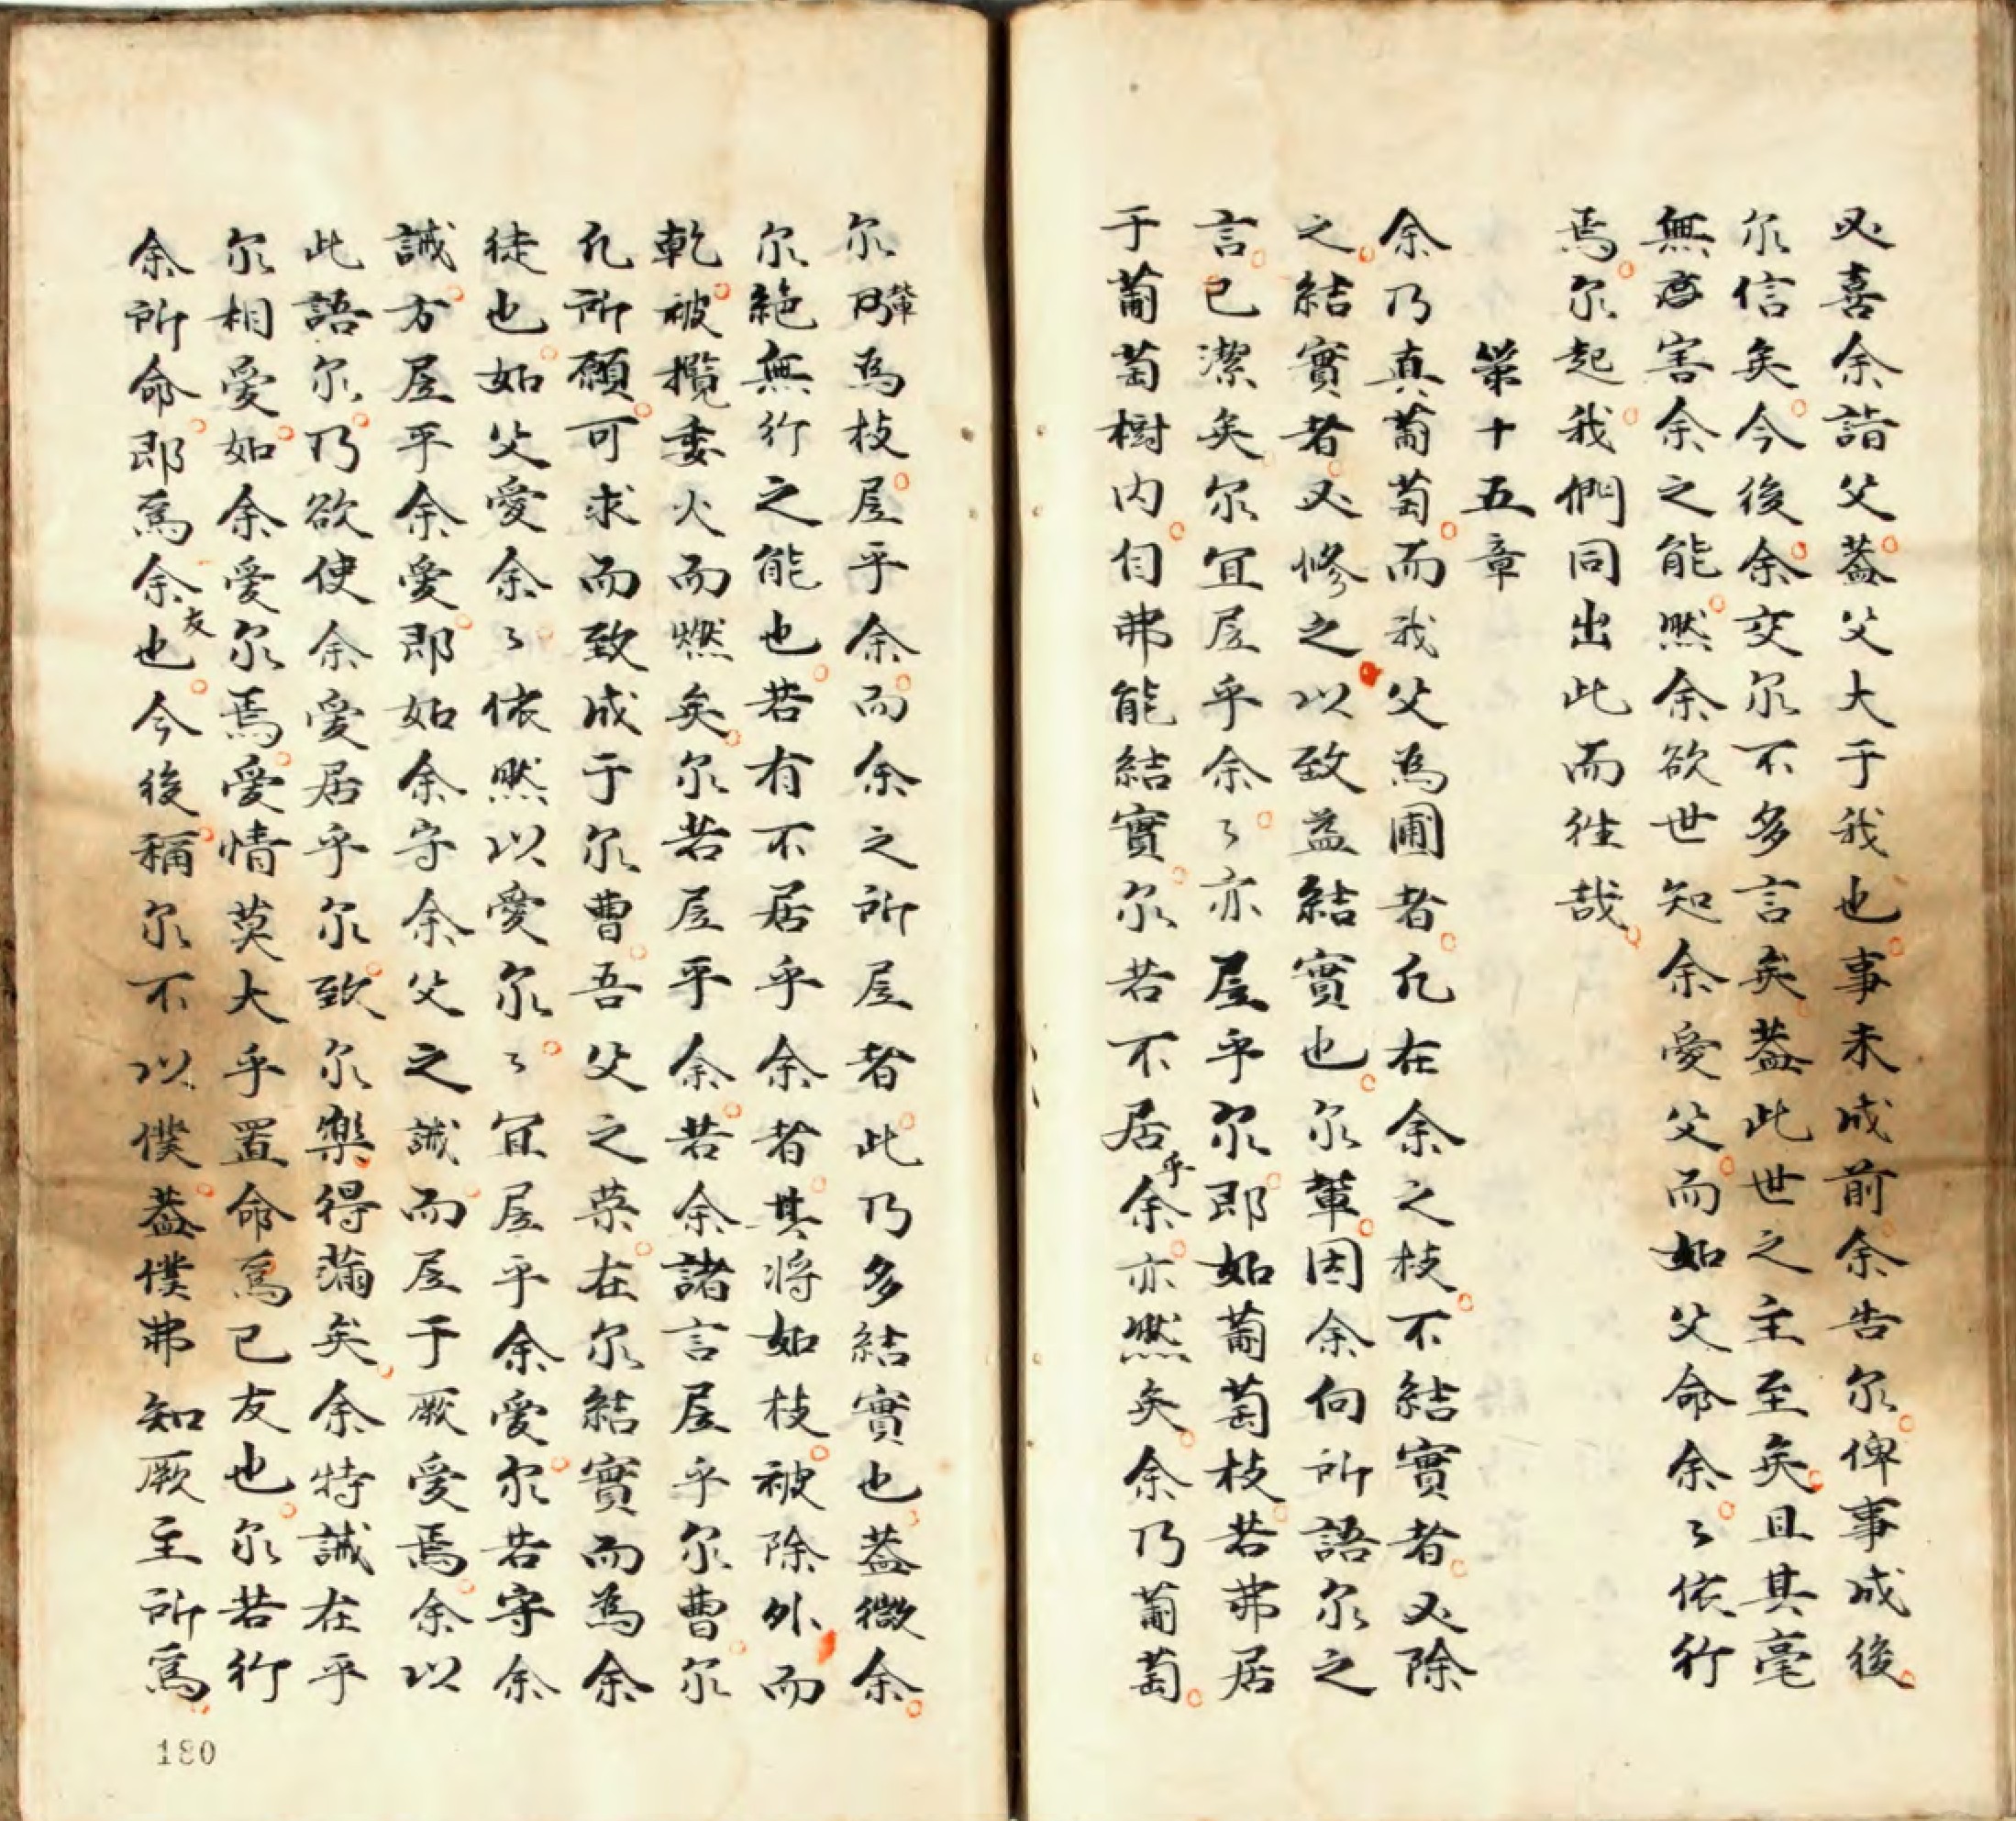 必喜余詣父蓋父大于我也事未成前余告尔俾事成後
尔信矣今後余交尔不多言矣蓋此世之主至矣且其毫
無害余之能然余欲世知余愛父而如父命余〻依行
焉尔起我們同出此而徃哉
第十五章
余乃真葡萄而我父為圃者凢在余之枝不結實者必除
之結實者必修之以致益結實也尔輩因余向所語尔之
言已潔矣尔宜居乎余〻亦居乎尔即如葡萄枝若弗居
于葡萄樹内自弗能結實尔若不居乎余亦然矣余乃葡萄
尔輩為枝居乎余而余之所居者此乃多結實也蓋微余
尔絶無行之能也若有不居乎余者其将如枝被除外而
乾被攬委火而燃矣尔若居乎余若余諸言居乎尔曹尔
凢所願可求而致成于尔曹吾父之荣在尔結實而為余
徒也如父愛余〻依然以愛尔〻宜居乎余愛尔若守余
誡方居乎余愛即如余守余父之誡而居于厥愛焉余以
此語尔乃欲使余愛居乎尔致尔樂得滿矣余特誡在乎
尔相愛如余愛尔焉愛情莫大乎置命爲已友也尔若行
余所命即爲余友也今後稱尔不以僕蓋僕弗知厥主所爲
180